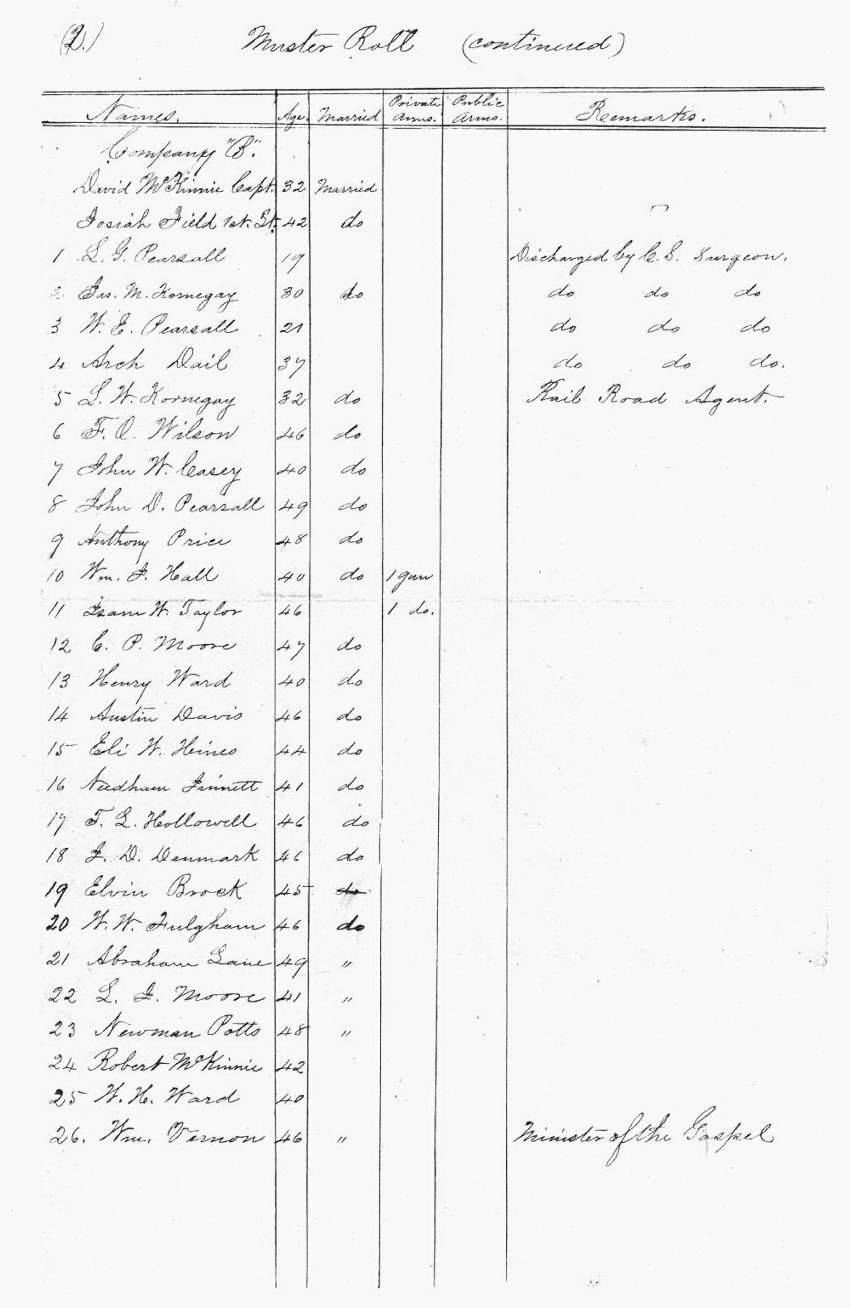 (2.) Muster Roll (continued)
Names. Age. Married Private Arms. Public Arms. Remarks.
Company "B".
David McKinnie Capt. 32 Married
Josiah Field 1st. Lt. 42 do
1 L. G. Pearsall 19 Discharged by C. S. Surgeon.
2 Jas. M. Kornegay 30 do do do do
3 W. E. Pearsall 21 do do do
4 Arch Dail 37 do do do.
5 L. W. Kornegay 32 do Rail Road Agent.
6 F. O. Wilson 46 do
7 John W. Casey 40 do
8 John D. Pearsall 49 do
9 Anthony Price 48 do
10 Wm. J. Hall 40 do 1 gun
11 Isam W. Taylor 46 1 do.
12 C. P. Moore 47 do
13 Henry Ward 40 do
14 Austin Davis 46 do
15 Eli W. Heines 44 do
16 Needham Jinnett 41 do
17 T. L. Hollowell 46 do
18 J. D. Denmark 46 do
19 Elvin Brock 45 do
20 W. W. Fulgham 46 do
21 Abraham Lane 49 "
22 L. J. Moore 41 "
23 Newman Potts 48 "
24 Robert McKinnie 42
25 W. H. Ward 40
26. Wm. Vernon 46 " Minister of the Gospel